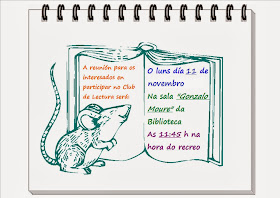 A reunión para os
interesados en
participar no Club
de Lectura será:
O luns día 11 de
novembro
Na sala "Gonzalo
Moure" da
Biblioteca
As 11:45 h na
hora do recreo